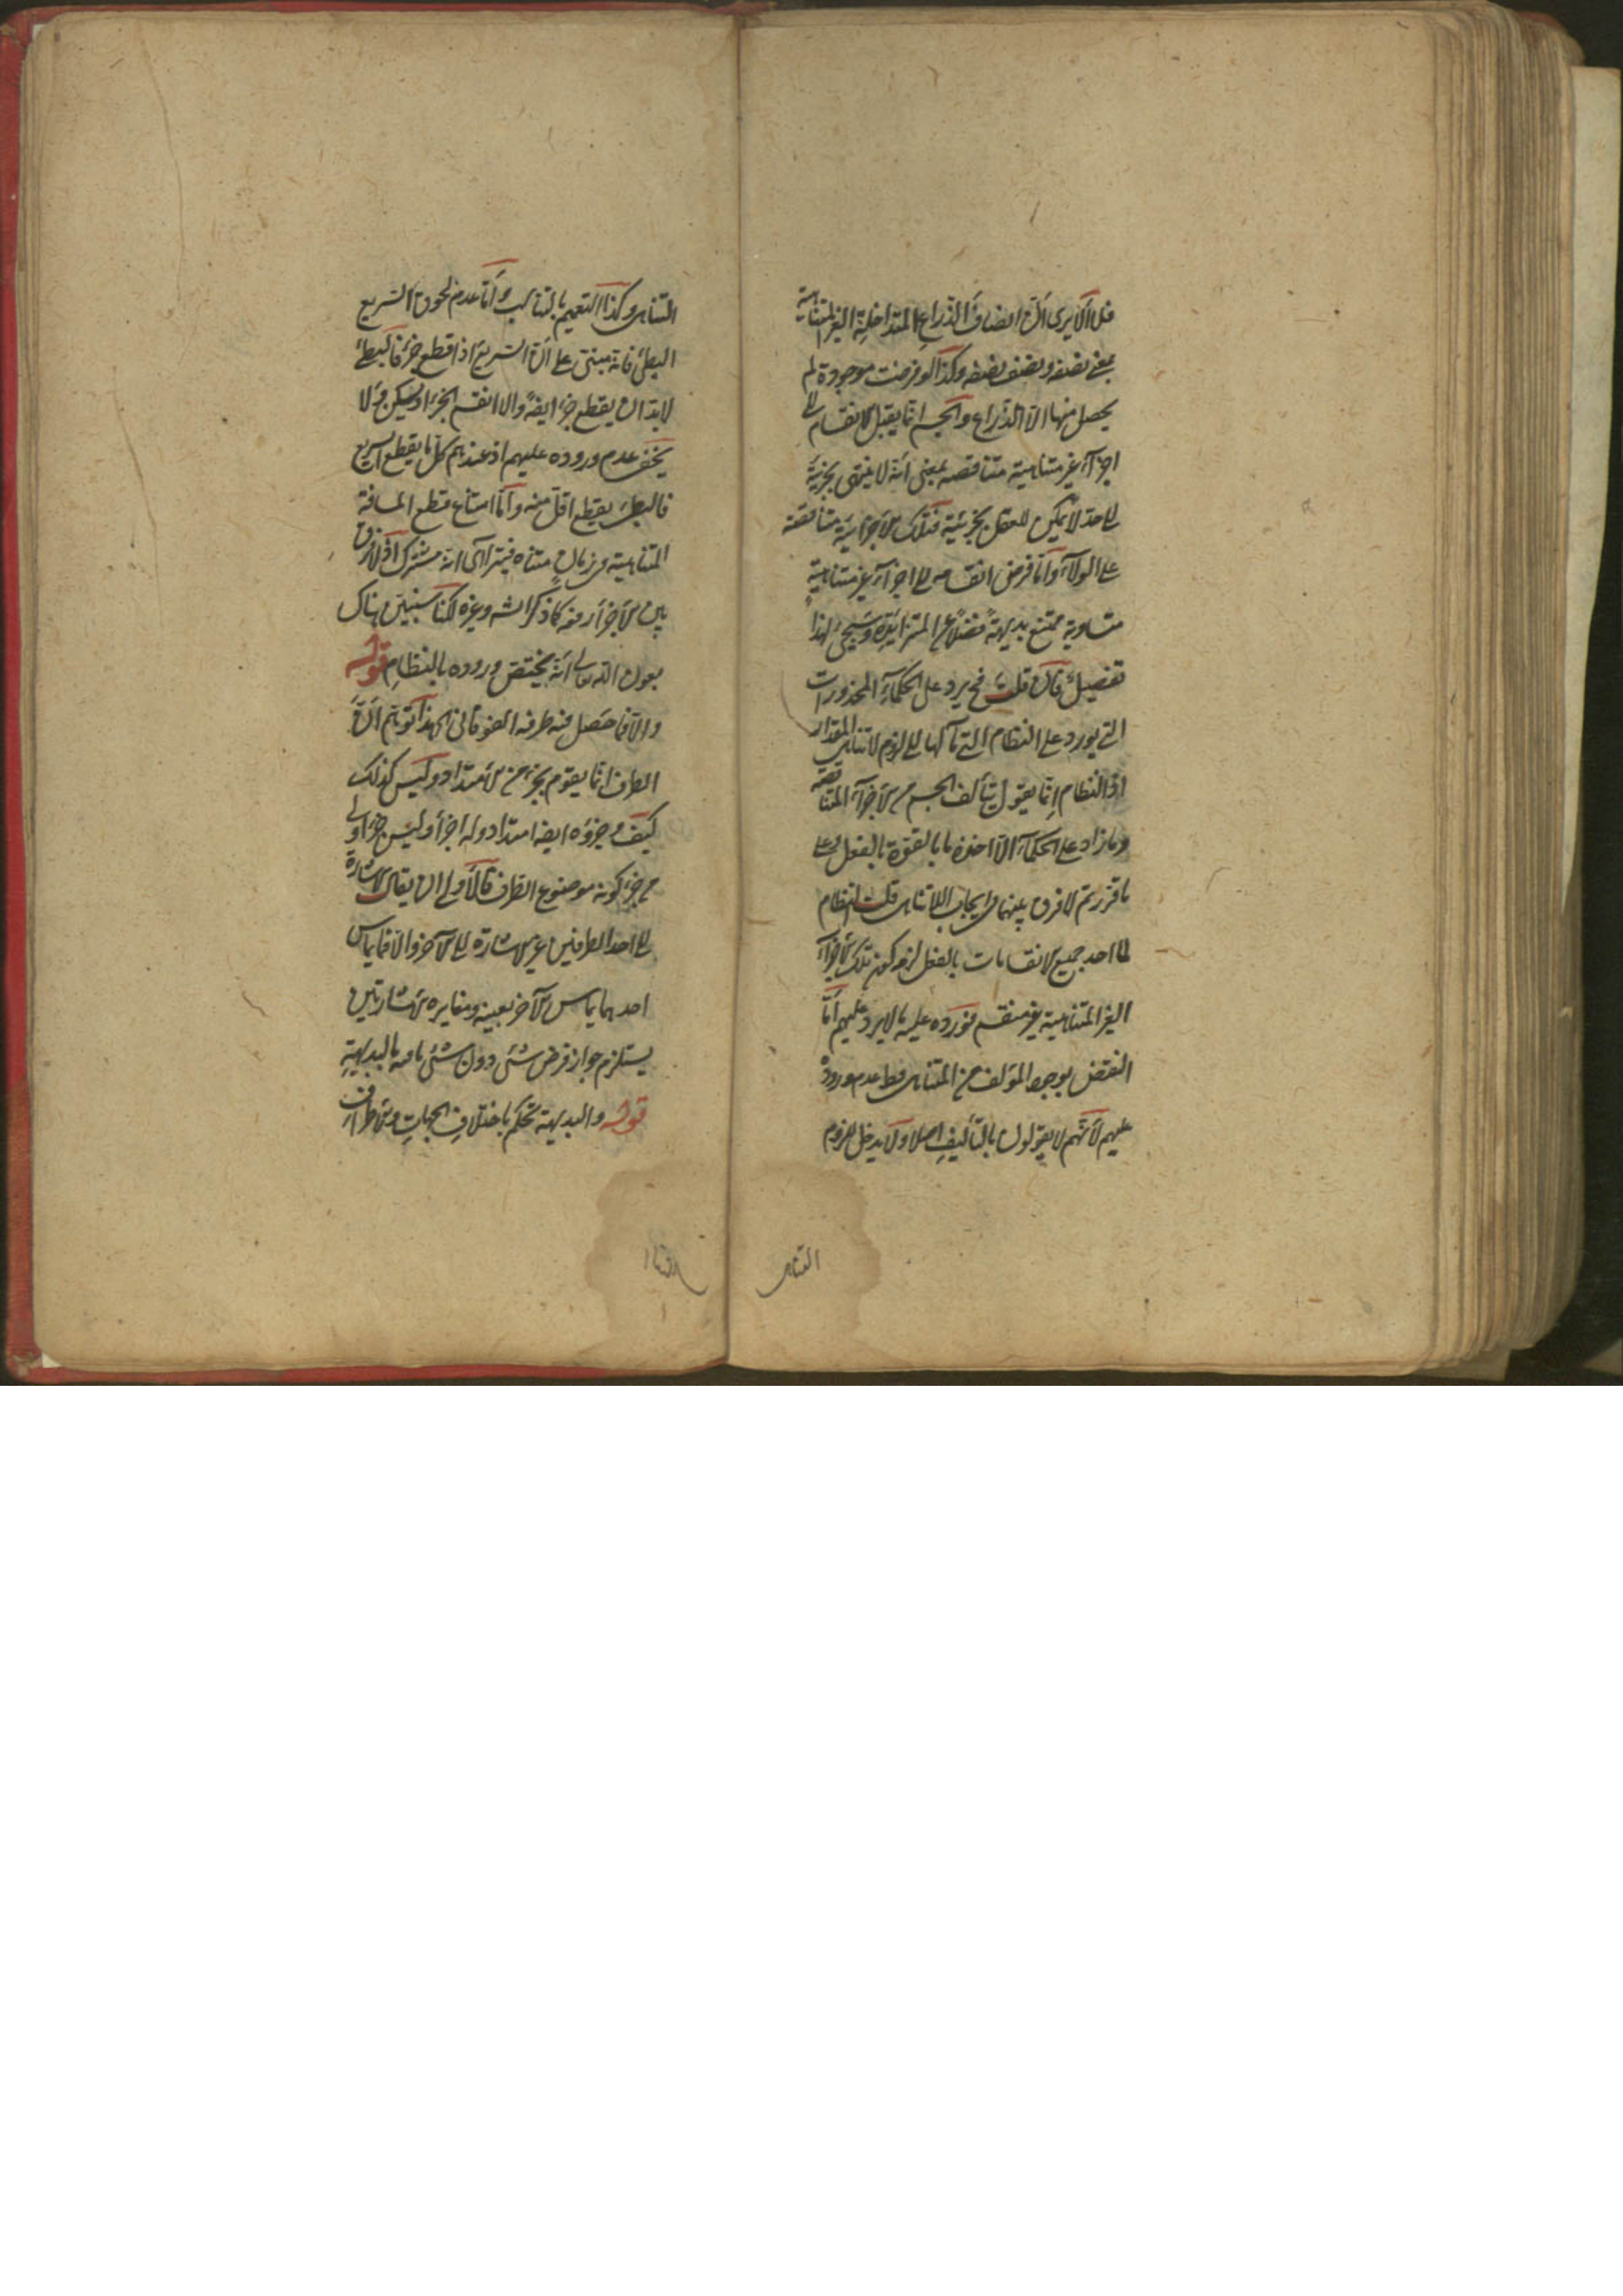 فلا الا يرى ان انصاف الذراع المتداخلة الغير المتناهية
بمعنى نصفه ونصف نصفه وكذا لو فرضت موجودة لم
يحصل منها الا الذراع والجسم انما يقبل الانقسام الى
اجزاء غير متناهية متناقصة بمعنى انه لا ينتهى بجزئية
الى حد لا يمكن للعقل بجزئية فتلك الاجزاء متناقصة
على الولاء واما فرض انقسامه الى اجزاء غير متناهية
متساوية ممتنع بديهة فضلا عن المتزايدة وسيجئ لهذا
تفصيل فان قلت فح يرد على الحكماء المحذورات
التى يورد على النظام التى مآلها الى لزوم لا تناهى المقدار
اذ النظام انما يقول بتألف الجسم من الاجزاء المتناقصة
وما زاد على الحكماء الا اخذه ما بالقوة بالفعل وعلى
ما قررتم لا فرق بينهما فى ايجاب اللاتناهى قلت النظام
لما اخذ جميع الانقسامات بالفعل لزمه كون تلك الاجزاء
الغير المتناهية غير منقسم فنورد عليه ما لا يرد عليهم اما
النقض بوجود المؤلف من المتناهى فظ عدم وروده
عليهم لانهم لا يقولون بالتأليف اصلا ولا يدخل لزوم
التناهى
التناهى وكذا التعميم بالتناسب واما عدم لحوق السريع
البطئ فانه مبنى على ان السريع اذا قطع جزء فالبطئ
لا بد ان يقطع جزء ايضا والا انقسم الجزء او يسكن ولا
يخفى عدم وروده عليهم اذ عندهم كل ما يقطع السريع
فالبطئ يقطع اقل منه واما امتناع قطع المسافة
المتناهية فى زمان متناه فيتراآى انه مشترك اذ لا فرق
بين الاجزاء فيه كما ذكر الش وغيره لكنا سنبين هناك
بعون الله تعالى انه يختص وروده بالنظام قوله
والا فما حصل منه طرفه الفوقانى الهذا توهم ان
الطرف انما يقوم بجزء من الامتداد وليس كذلك
كيف وجزؤه ايضا امتداد وله اجزاء وليس جزء اولى
من جزء كونه موضوع الطرف فالاولى ان يقال الاشارة
الى احد الطرفين غير الاشارة الى الآخر والا فما يماس
احدهما يماس الآخر بعينه ومغايرة الاشارتين
يستلزم جواز فرض شئ دون شئ ما فيه بالبديهة
قوله والبديهة تحكم باختلاف الجهات والاطراف